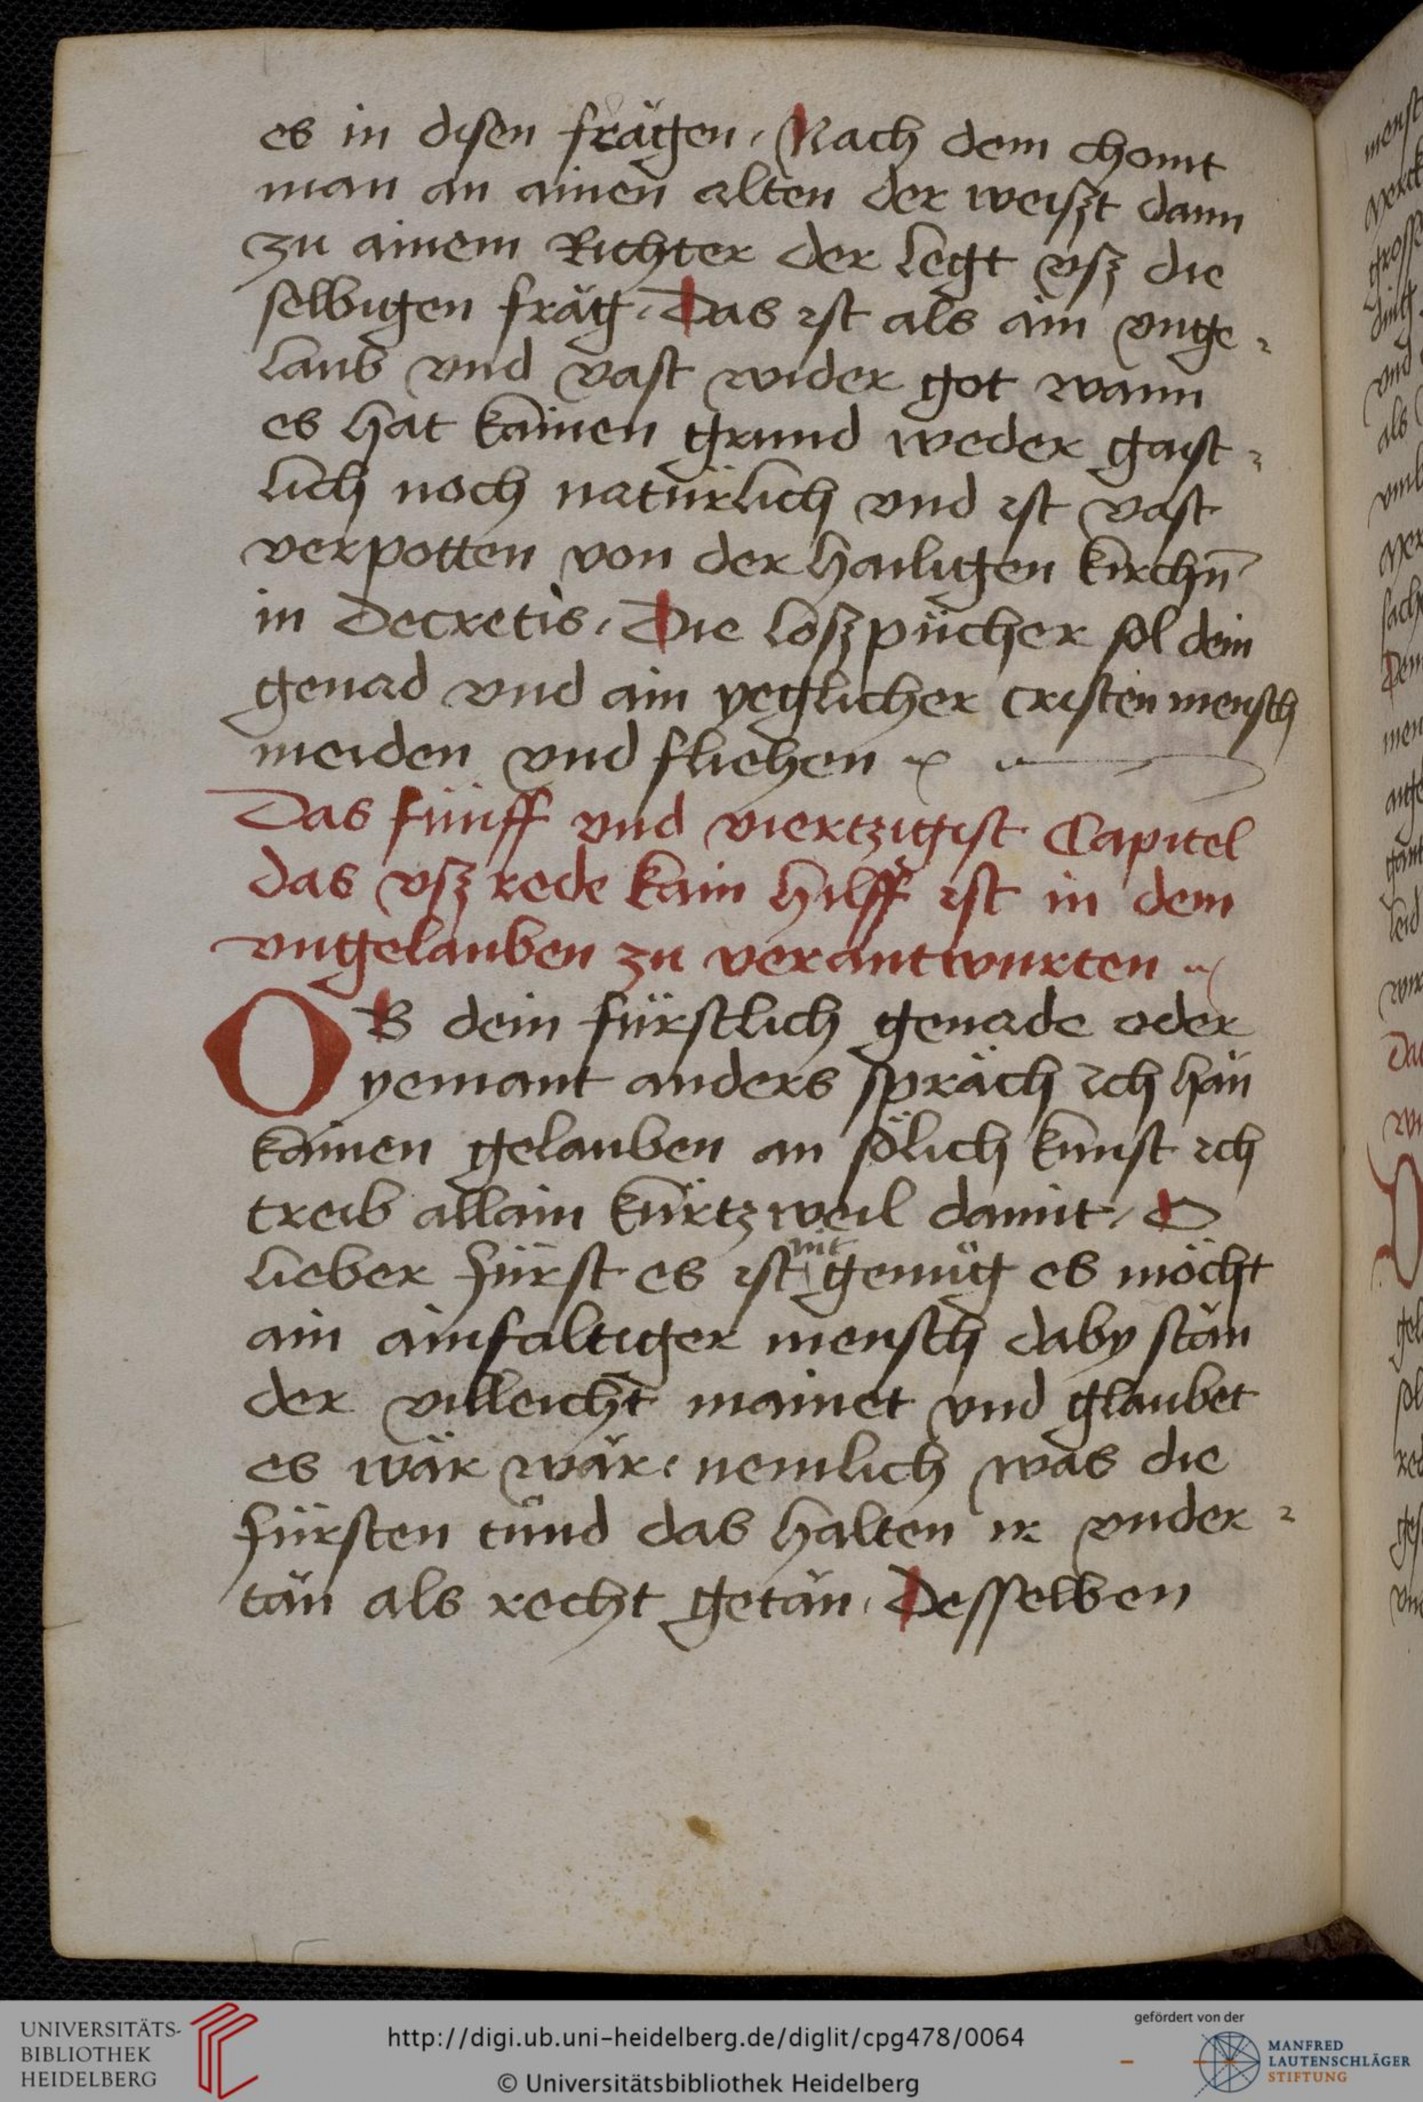 es in disen frägen. Nach dem chomt
man an ainen alten der weißt dann
zu ainem Richter der legt vsz die
selbigen fräg. Das ist als ain vnge⸗
laub vnd vast wider got wann
es hat kainen grund weder gaist⸗
lich noch natürlich vnd ist vast
verpotten von der hailigen kirchn̄
in decretis. Die loszpücher sol dein
genad vnd ain yeglicher cristen mensch
meiden vnd fliehen
Das fünff vnd viertzigist Capitel
das vsz rede kain hilff ist in dem
vngelauben zu verantwurten
OB dein fürstlich genade oder
yemant anders spräch ich hän
kainen gelauben an sölich kunst ich
treib allain kürtzweil damit. O
lieber fürst es ist nit genüg es möcht
ain ainfaltiger mensch daby stän
der villeicht mainet vnd glaubet
es wär wär. nemlich was die
fürsten tünd das halten ir vnder⸗
tän als recht getän. Desselben
UNIVERSITÄTS-
BIBLIOTHEK
HEIDELBERG
http://digi.ub.uni-heidelberg.de/diglit/cpg478/0064
© Universitätsbibliothek Heidelberg
gefördert von der
MANFRED
LAUTENSCHLÄGER
STIFTUNG